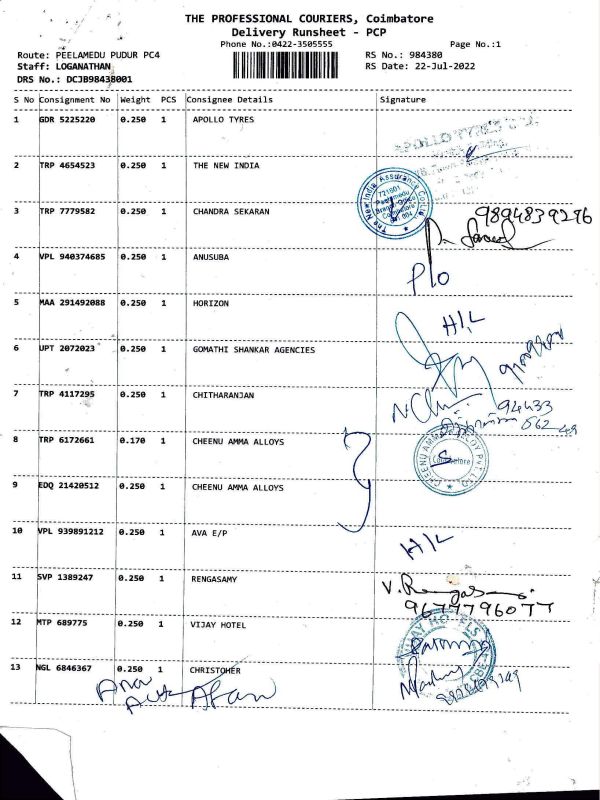 THE PROFESSIONAL COURIERS, Coimbatore
Delivery Runsheet - PCP
Phone No.:0422-3505555 Page No.:1
Route: PEELAMEDU PUDUR PC4 RS No.: 984380
Staff: LOGANATHAN RS Date: 22-Jul-2022
DRS No.: DCJB98438001
S No Consignment No Weight PCS Consignee Details Signature
1 GDR 5225220 0.250 1 APOLLO TYRES
2 TRP 4654523 0.250 1 THE NEW INDIA
The New India Assurance
721001
Peelamedu
Coimbatore
3 TRP 7779582 0.250 1 CHANDRA SEKARAN 9894839296
4 VPL 940374685 0.250 1 ANUSUBA P/o
5 MAA 291492088 0.250 1 HORIZON H/L
6 UPT 2072023 0.250 1 GOMATHI SHANKAR AGENCIES
7 TRP 4117295 0.250 1 CHITHARANJAN 94433
8 TRP 6172661 0.170 1 CHEENU AMMA ALLOYS
CHEENU AMMA ALLOY PVT LTD
Coimbatore
9 EDQ 21420512 0.250 1 CHEENU AMMA ALLOYS
10 VPL 939891212 0.250 1 AVA E/P H/L
11 SVP 1389247 0.250 1 RENGASAMY V. Rengasami
9677796077
12 MTP 689775 0.250 1 VIJAY HOTEL
13 NGL 6846367 0.250 1 CHRISTOHER